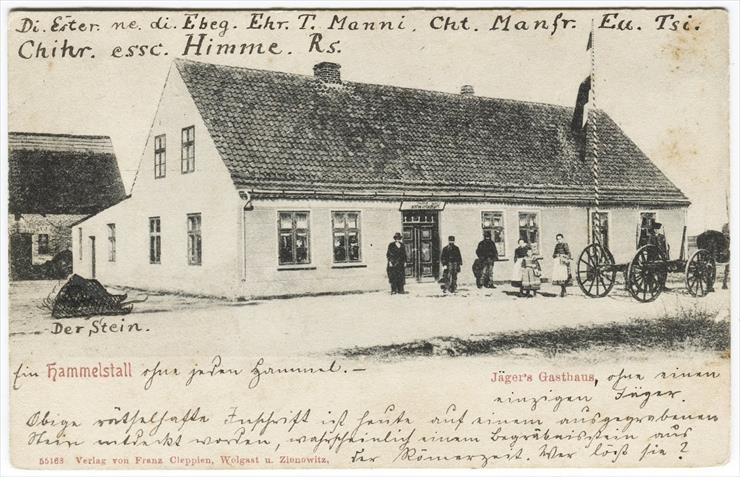 Di. Ester. ne. di. Ebeg. Ehr. T. Manni. Cht. Manfr. Eu. Tsi.
Chihr. essc. Himme. Rs.
Der Stein.
Ein Hammelstall ohne jeden Hammel. —
Jäger's Gasthaus, ohne einen
einzigen Jäger.
Obige rätselhafte Inschrift ist heute auf einem ausgegrabenen
Stein entdeckt worden, wahrscheinlich einem Begräbnisstein aus
der Römerzeit. Wer löst sie?
55163 Verlag von Franz Cleppien, Wolgast u. Zinnowitz,